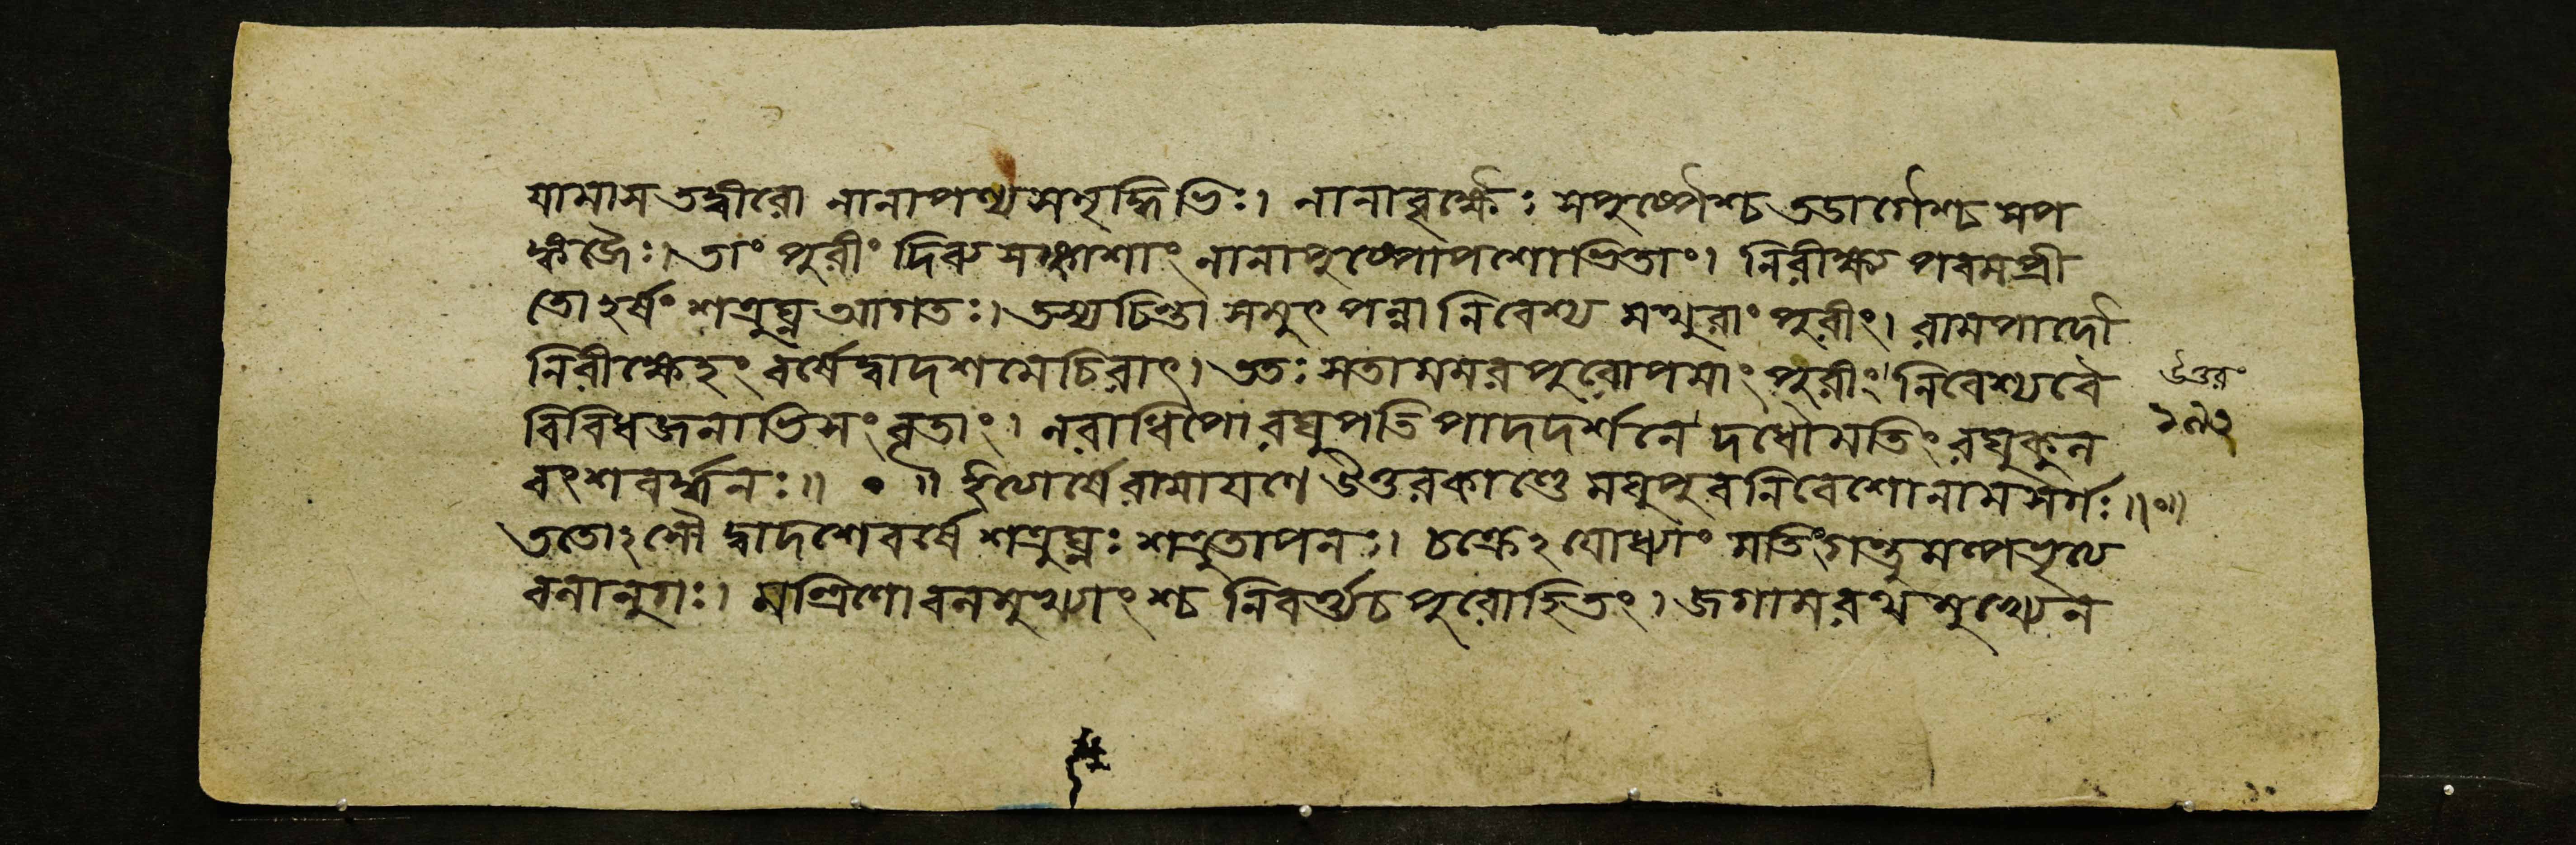 যামাস তদ্বীরো নানাপণ্যসমৃদ্ধিভিঃ। নানাবৃক্ষৈঃ সপুষ্পৈশ্চ তডাগৈশ্চ সপ
ঙ্কজৈঃ। তাং পুরীং দিব্যসঙ্কাশাং নানাপুষ্পোপশোভিতাং। নিরীক্ষ্য পরমপ্রী
তো২র্ষং শত্রুঘ্ন আগতঃ। তস্যচিন্তা সমুৎপন্না নিবেশ্য মথুরাং পুরীং। রামপাদৌ
নিরীক্ষেহং বর্ষেদ্বাদশমেচিরাৎ। ততঃ সতামমরপুরোপমাং পুরীং নিবেশ্যবৈ
বিবিধজনাভিসংবৃতাং। নরাধিপো রঘুপতিপাদদর্শনে দধৌমতিং রঘুকুল
বংশবর্দ্ধনঃ॥ ০॥ ইত্যার্ষে রামায়ণে উত্তরকাণ্ডে মধুপুরনিবেশোনামসর্গঃ॥০॥
ততো২সৌ দ্বাদশেবর্ষে শত্রুঘ্নঃ শত্রুতাপনঃ। চক্রে২যোধ্যাং মতিংগন্তুমল্পভৃত্য
বলানুগঃ। মন্ত্রিণোবলমুখ্যাংশ্চ নিবর্ত্ত্যচপুরোহিতং। জগামরথমুখ্যেন
উত্তরং
১৯৩